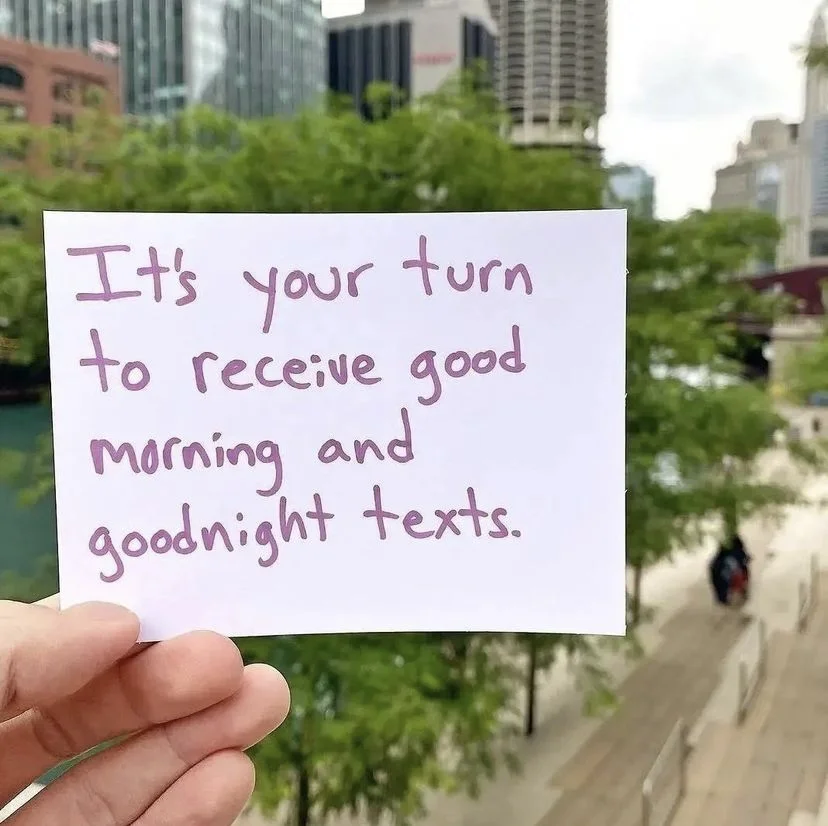 It's your turn
to receive good
morning and
goodnight texts.